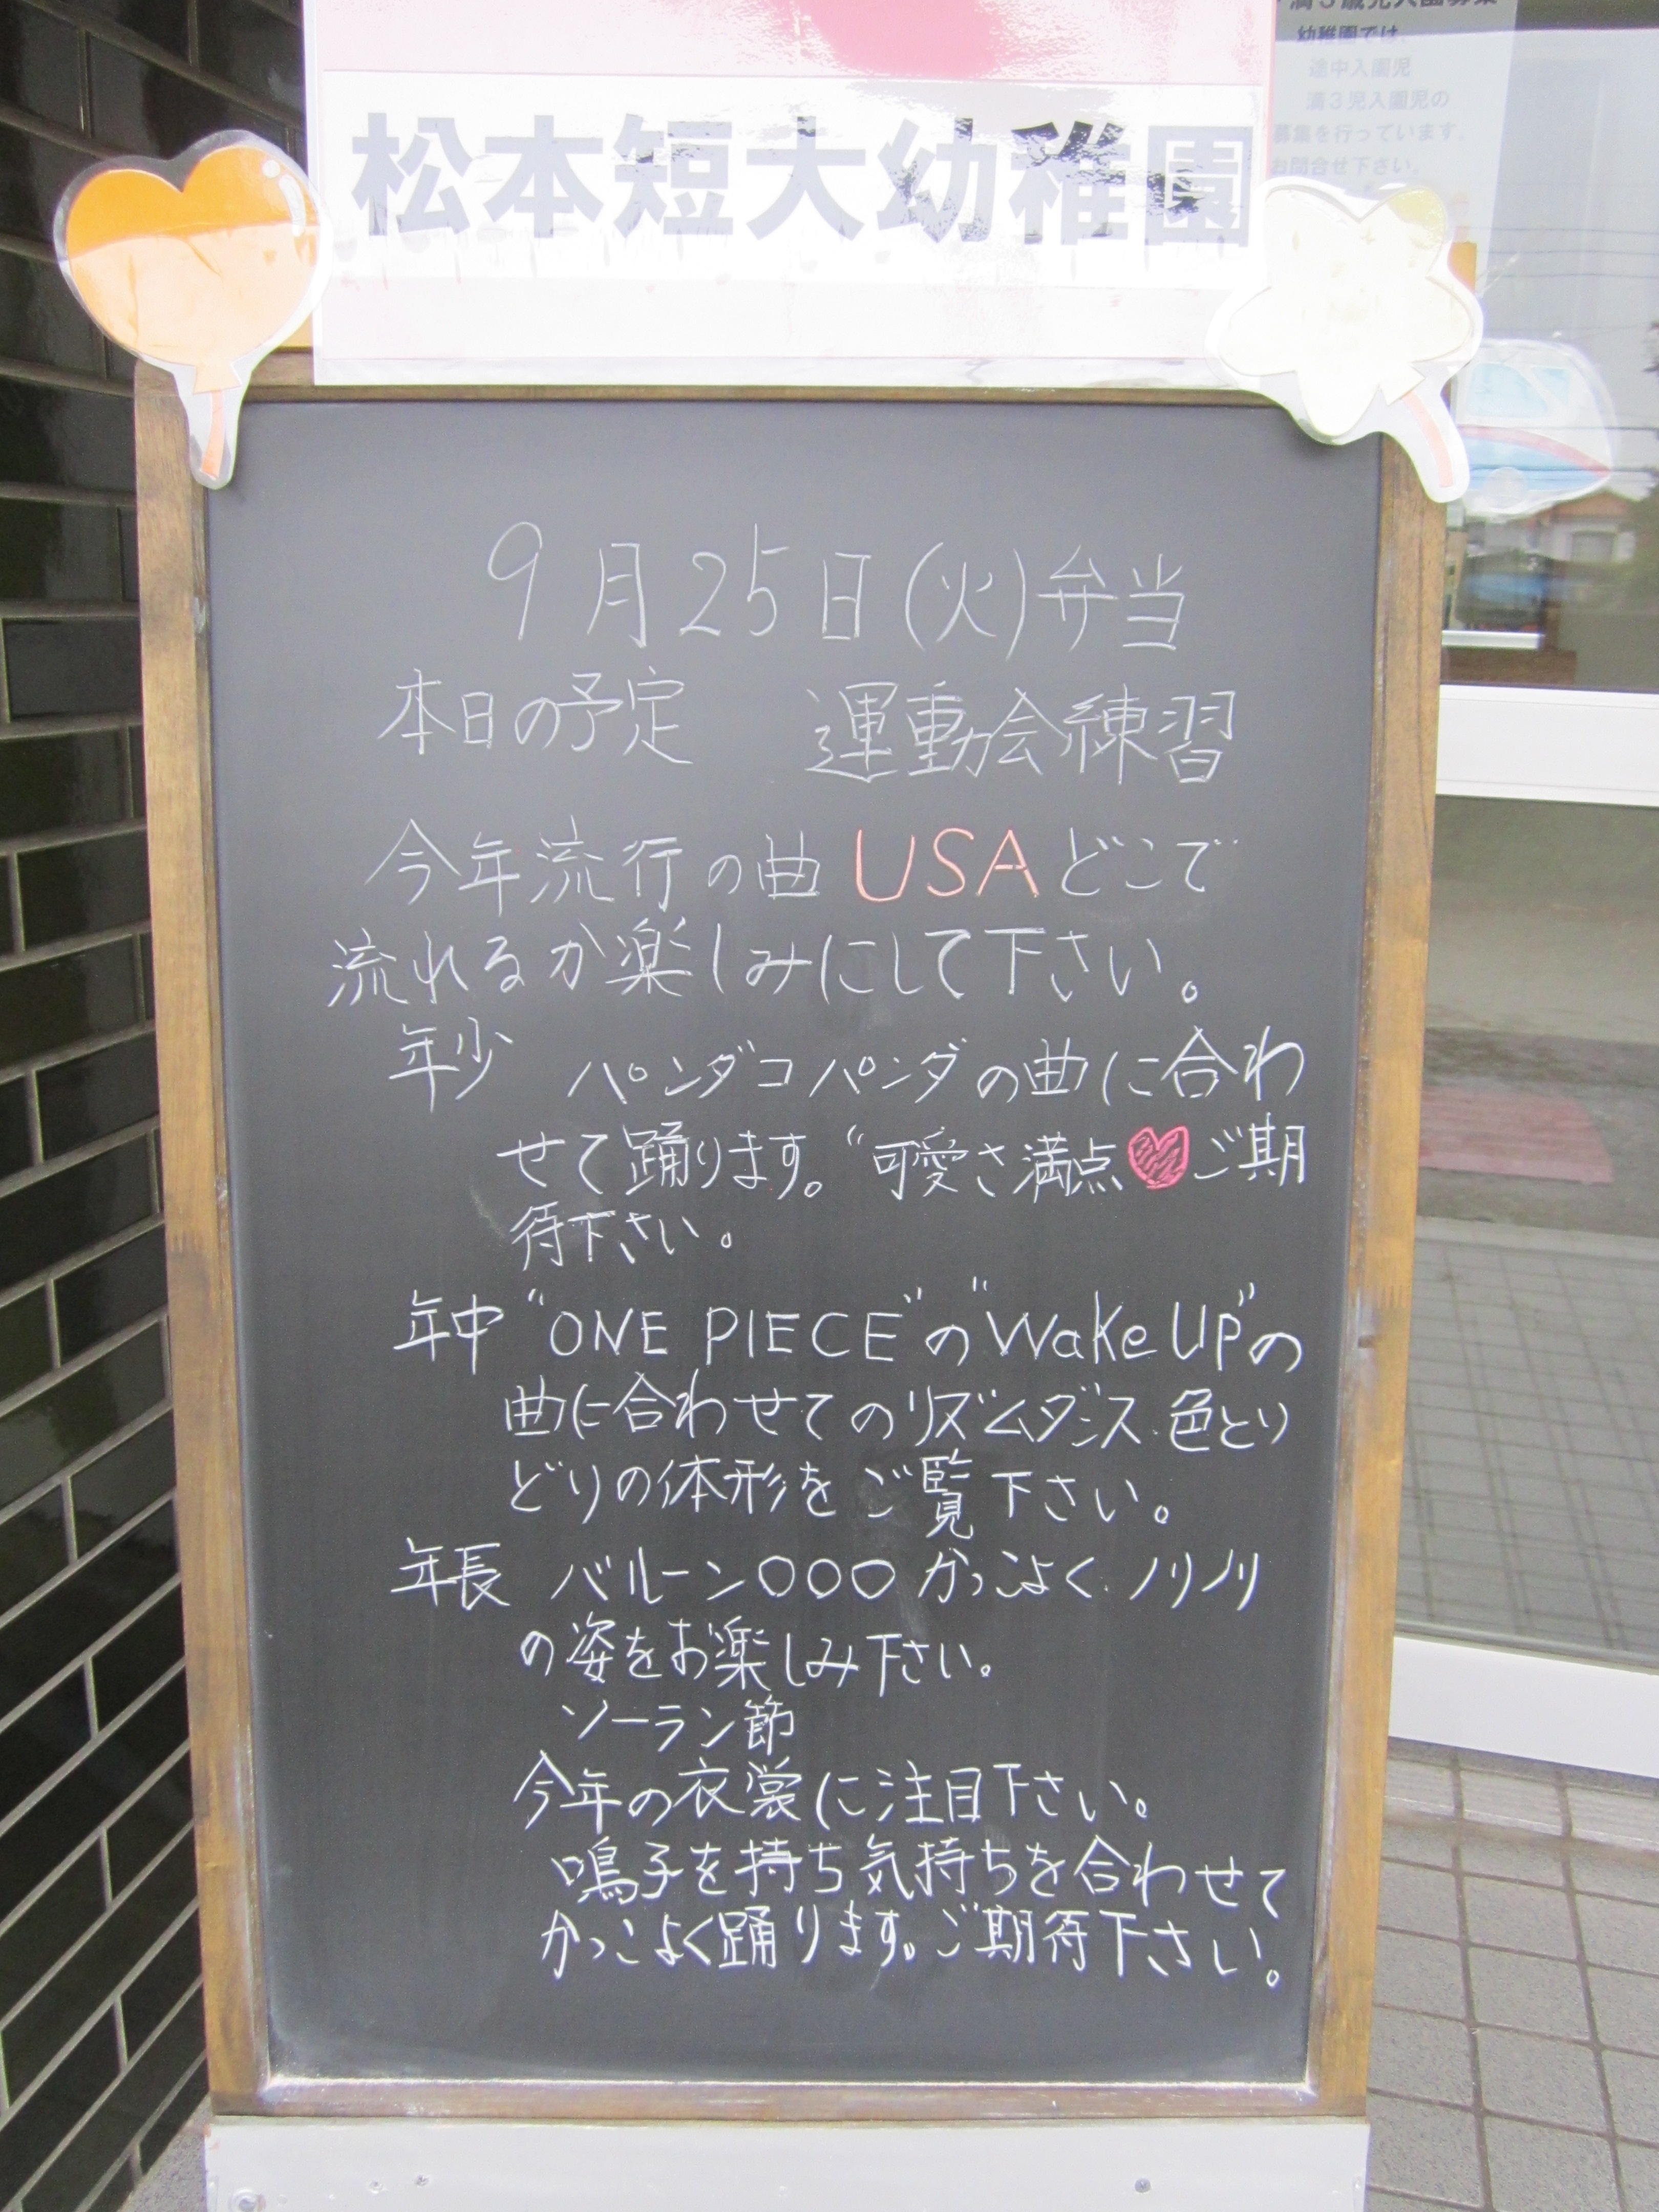 満3歳児入園募集
幼稚園では、
途中入園児
満3児入園児の
募集を行っています。
お問合せ下さい。
松本短大幼稚園
9月25日(火)弁当
本日の予定 運動会練習
今年流行の曲USAどこで
流れるか楽しみにして下さい。
年少 パンダコパンダの曲に合わ
せて踊ります。“可愛さ満点♥ご期
待下さい。
年中“ONE PIECE”の“Wake UP”の
曲に合わせてのリズムダンス.色とり
どりの体形をご覧下さい。
年長 バルーン〇〇〇かっこよく.ノリノリ
の姿をお楽しみ下さい。
ソーラン節
今年の衣裳に注目下さい。
鳴子を持ち気持ちを合わせて
かっこよく踊ります。ご期待下さい。